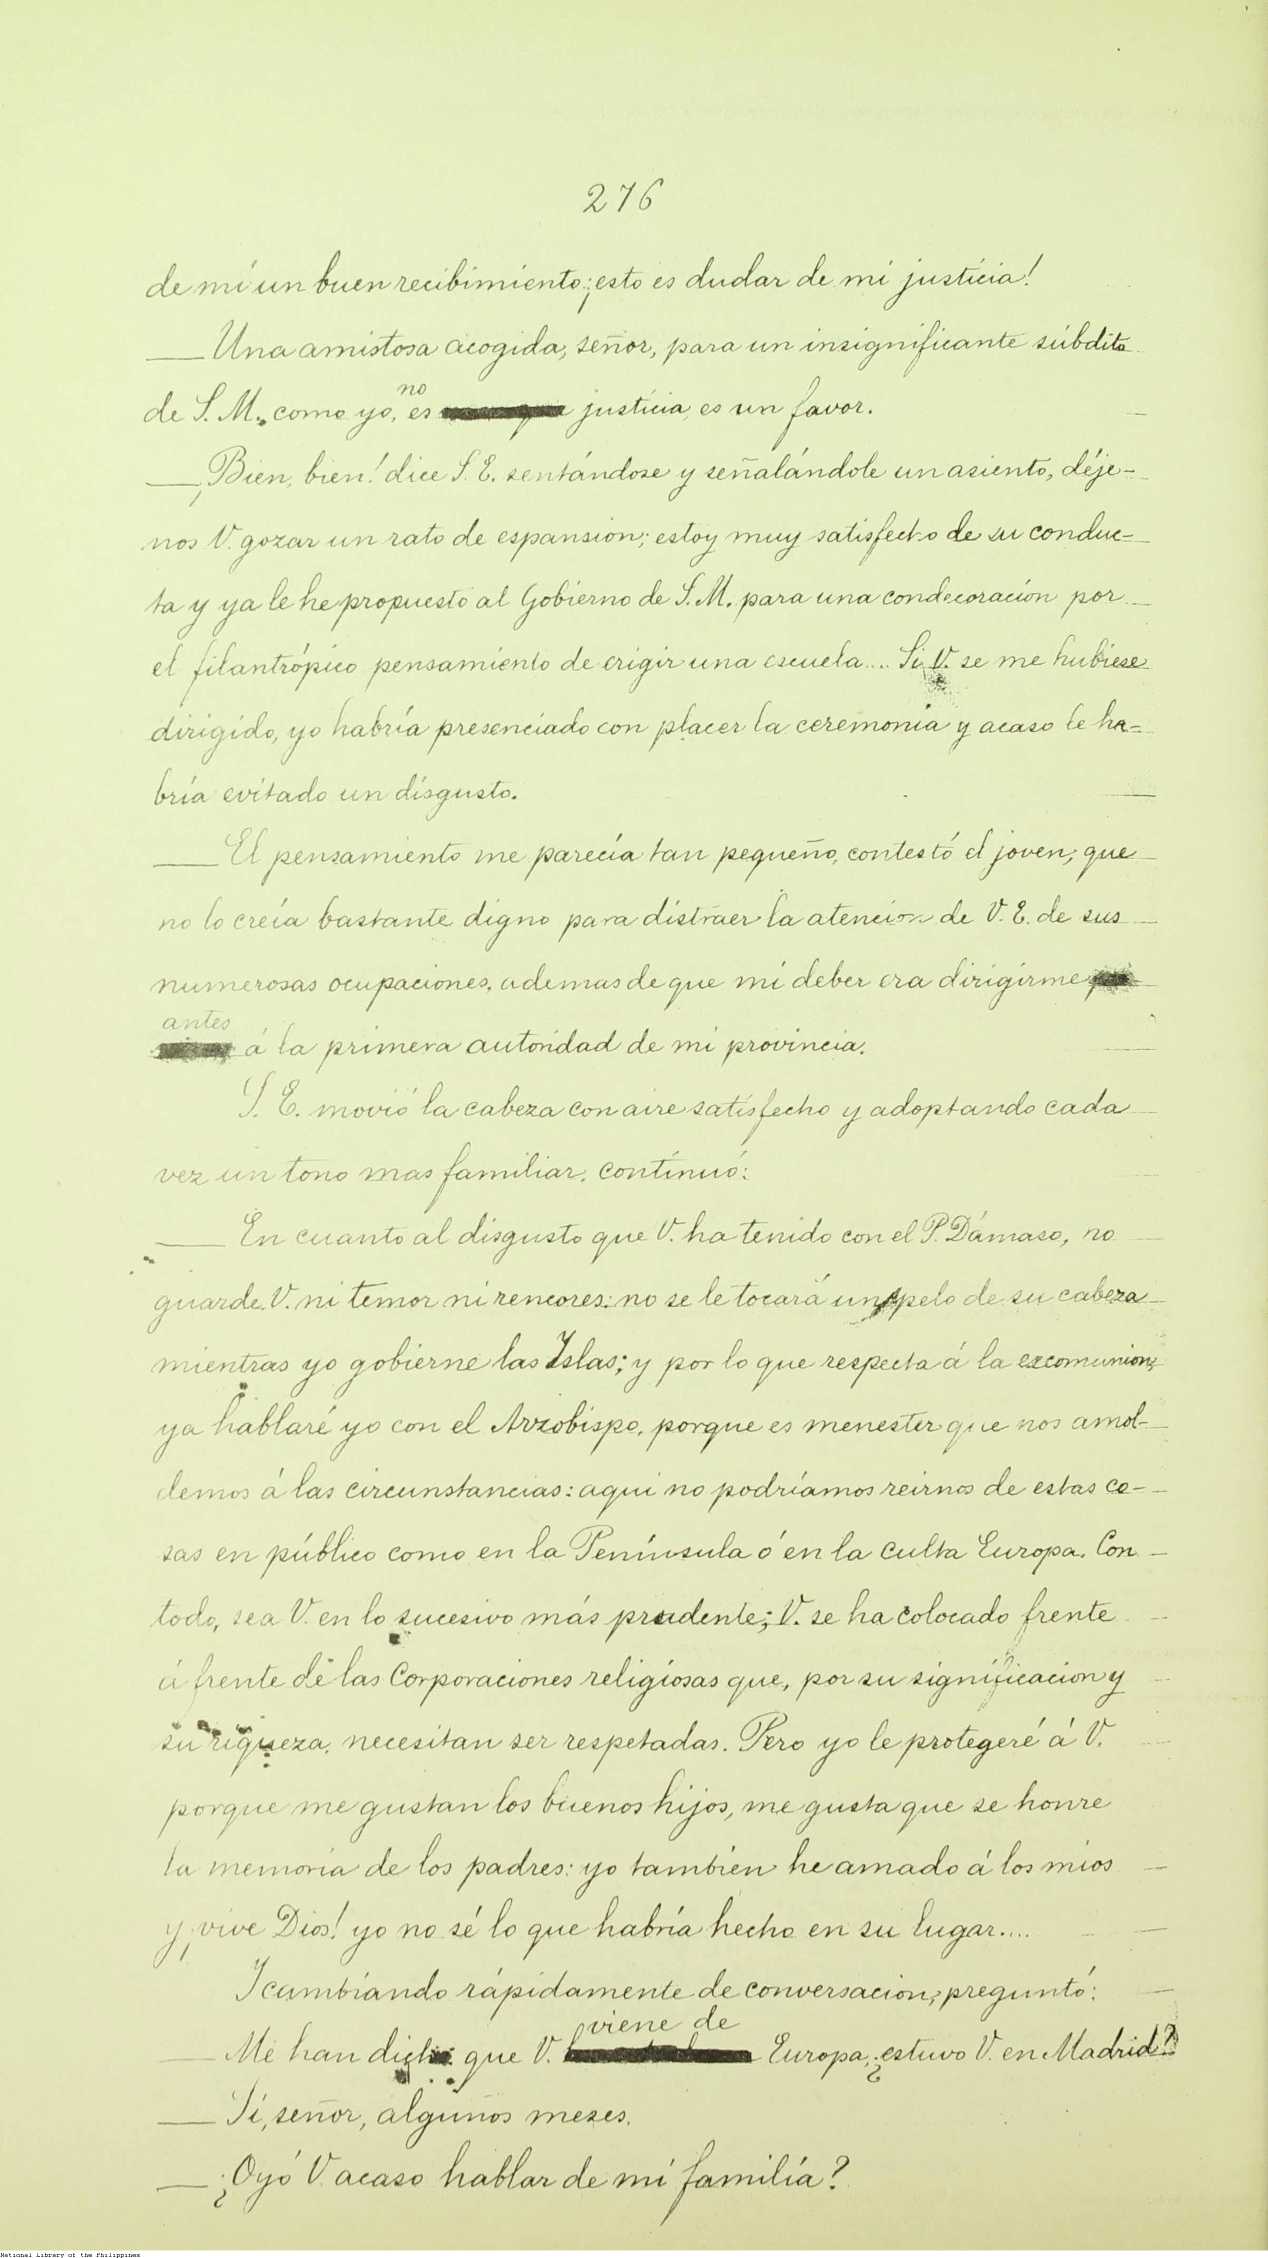 276
de mí un buen recibimiento; ¡esto es dudar de mi justicia!
— Una amistosa acogida, señor, para un insignificante súbdito
de S. M. como yo, no es justicia, es un favor.
— ¡Bien, bien! dice S. E. sentándose y señalándole un asiento, déje-
nos V. gozar un rato de espansion; estoy muy satisfecho de su conduc-
ta y ya le he propuesto al Gobierno de S. M. para una condecoración por
el filantrópico pensamiento de erigir una escuela.... Si V. se me hubiese
dirigido, yo habría presenciado con placer la ceremonia y acaso le ha-
bría evitado un disgusto.
— El pensamiento me parecía tan pequeño, contestó el joven, que
no lo creía bastante digno para distraer la atencion de V. E. de sus
numerosas ocupaciones, ademas de que mi deber era dirigirme
antes á la primera autoridad de mi provincia.
S. E. movió la cabeza con aire satisfecho y adoptando cada
vez un tono mas familiar, continuó:
— En cuanto al disgusto que V. ha tenido con el P. Dámaso, no
guarde V. ni temor ni rencores: no se le tocará un pelo de su cabeza
mientras yo gobierne las Islas; y por lo que respecta á la excomunion,
ya hablaré yo con el Arzobispo, porque es menester que nos amol-
demos á las circunstancias: aqui no podríamos reirnos de estas co-
sas en público como en la Península ó en la culta Europa. Con
todo, sea V. en lo sucesivo más prudente; V. se ha colocado frente
á frente de las Corporaciones religiosas que, por su significacion y
su riqueza, necesitan ser respetadas. Pero yo le protegeré á V.
porque me gustan los buenos hijos, me gusta que se honre
la memoria de los padres: yo tambien he amado á los mios
y ¡vive Dios! yo no sé lo que habría hecho en su lugar....
Y cambiando rápidamente de conversacion, preguntó:
— Me han dicho que V. viene de Europa, ¿estuvo V. en Madrid?
— Sí, señor, algunos meses.
— ¿Oyó V. acaso hablar de mi familia?
National Library of the Philippines